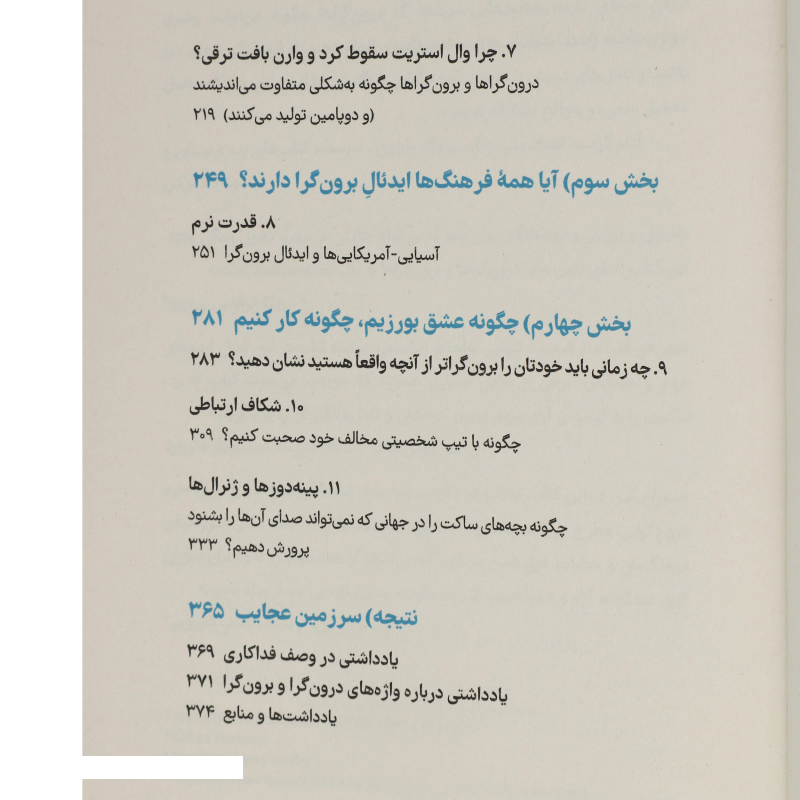 ۷. چرا وال استریت سقوط کرد و وارن بافت ترقی؟
درون‌گراها و برون‌گراها چگونه به‌شکلی متفاوت می‌اندیشند
(و دوپامین تولید می‌کنند) ۲۱۹
بخش سوم) آیا همهٔ فرهنگ‌ها ایدئالِ برون‌گرا دارند؟ ۲۴۹
۸. قدرت نرم
آسیایی-آمریکایی‌ها و ایدئال برون‌گرا ۲۵۱
بخش چهارم) چگونه عشق بورزیم، چگونه کار کنیم ۲۸۱
۹. چه زمانی باید خودتان را برون‌گراتر از آنچه واقعاً هستید نشان دهید؟ ۲۸۳
۱۰. شکاف ارتباطی
چگونه با تیپ شخصیتی مخالف خود صحبت کنیم؟ ۳۰۹
۱۱. پینه‌دوزها و ژنرال‌ها
چگونه بچه‌های ساکت را در جهانی که نمی‌تواند صدای آن‌ها را بشنود
پرورش دهیم؟ ۳۳۳
نتیجه) سرزمین عجایب ۳۶۵
یادداشتی در وصف فداکاری ۳۶۹
یادداشتی درباره واژه‌های درون‌گرا و برون‌گرا ۳۷۱
یادداشت‌ها و منابع ۳۷۴